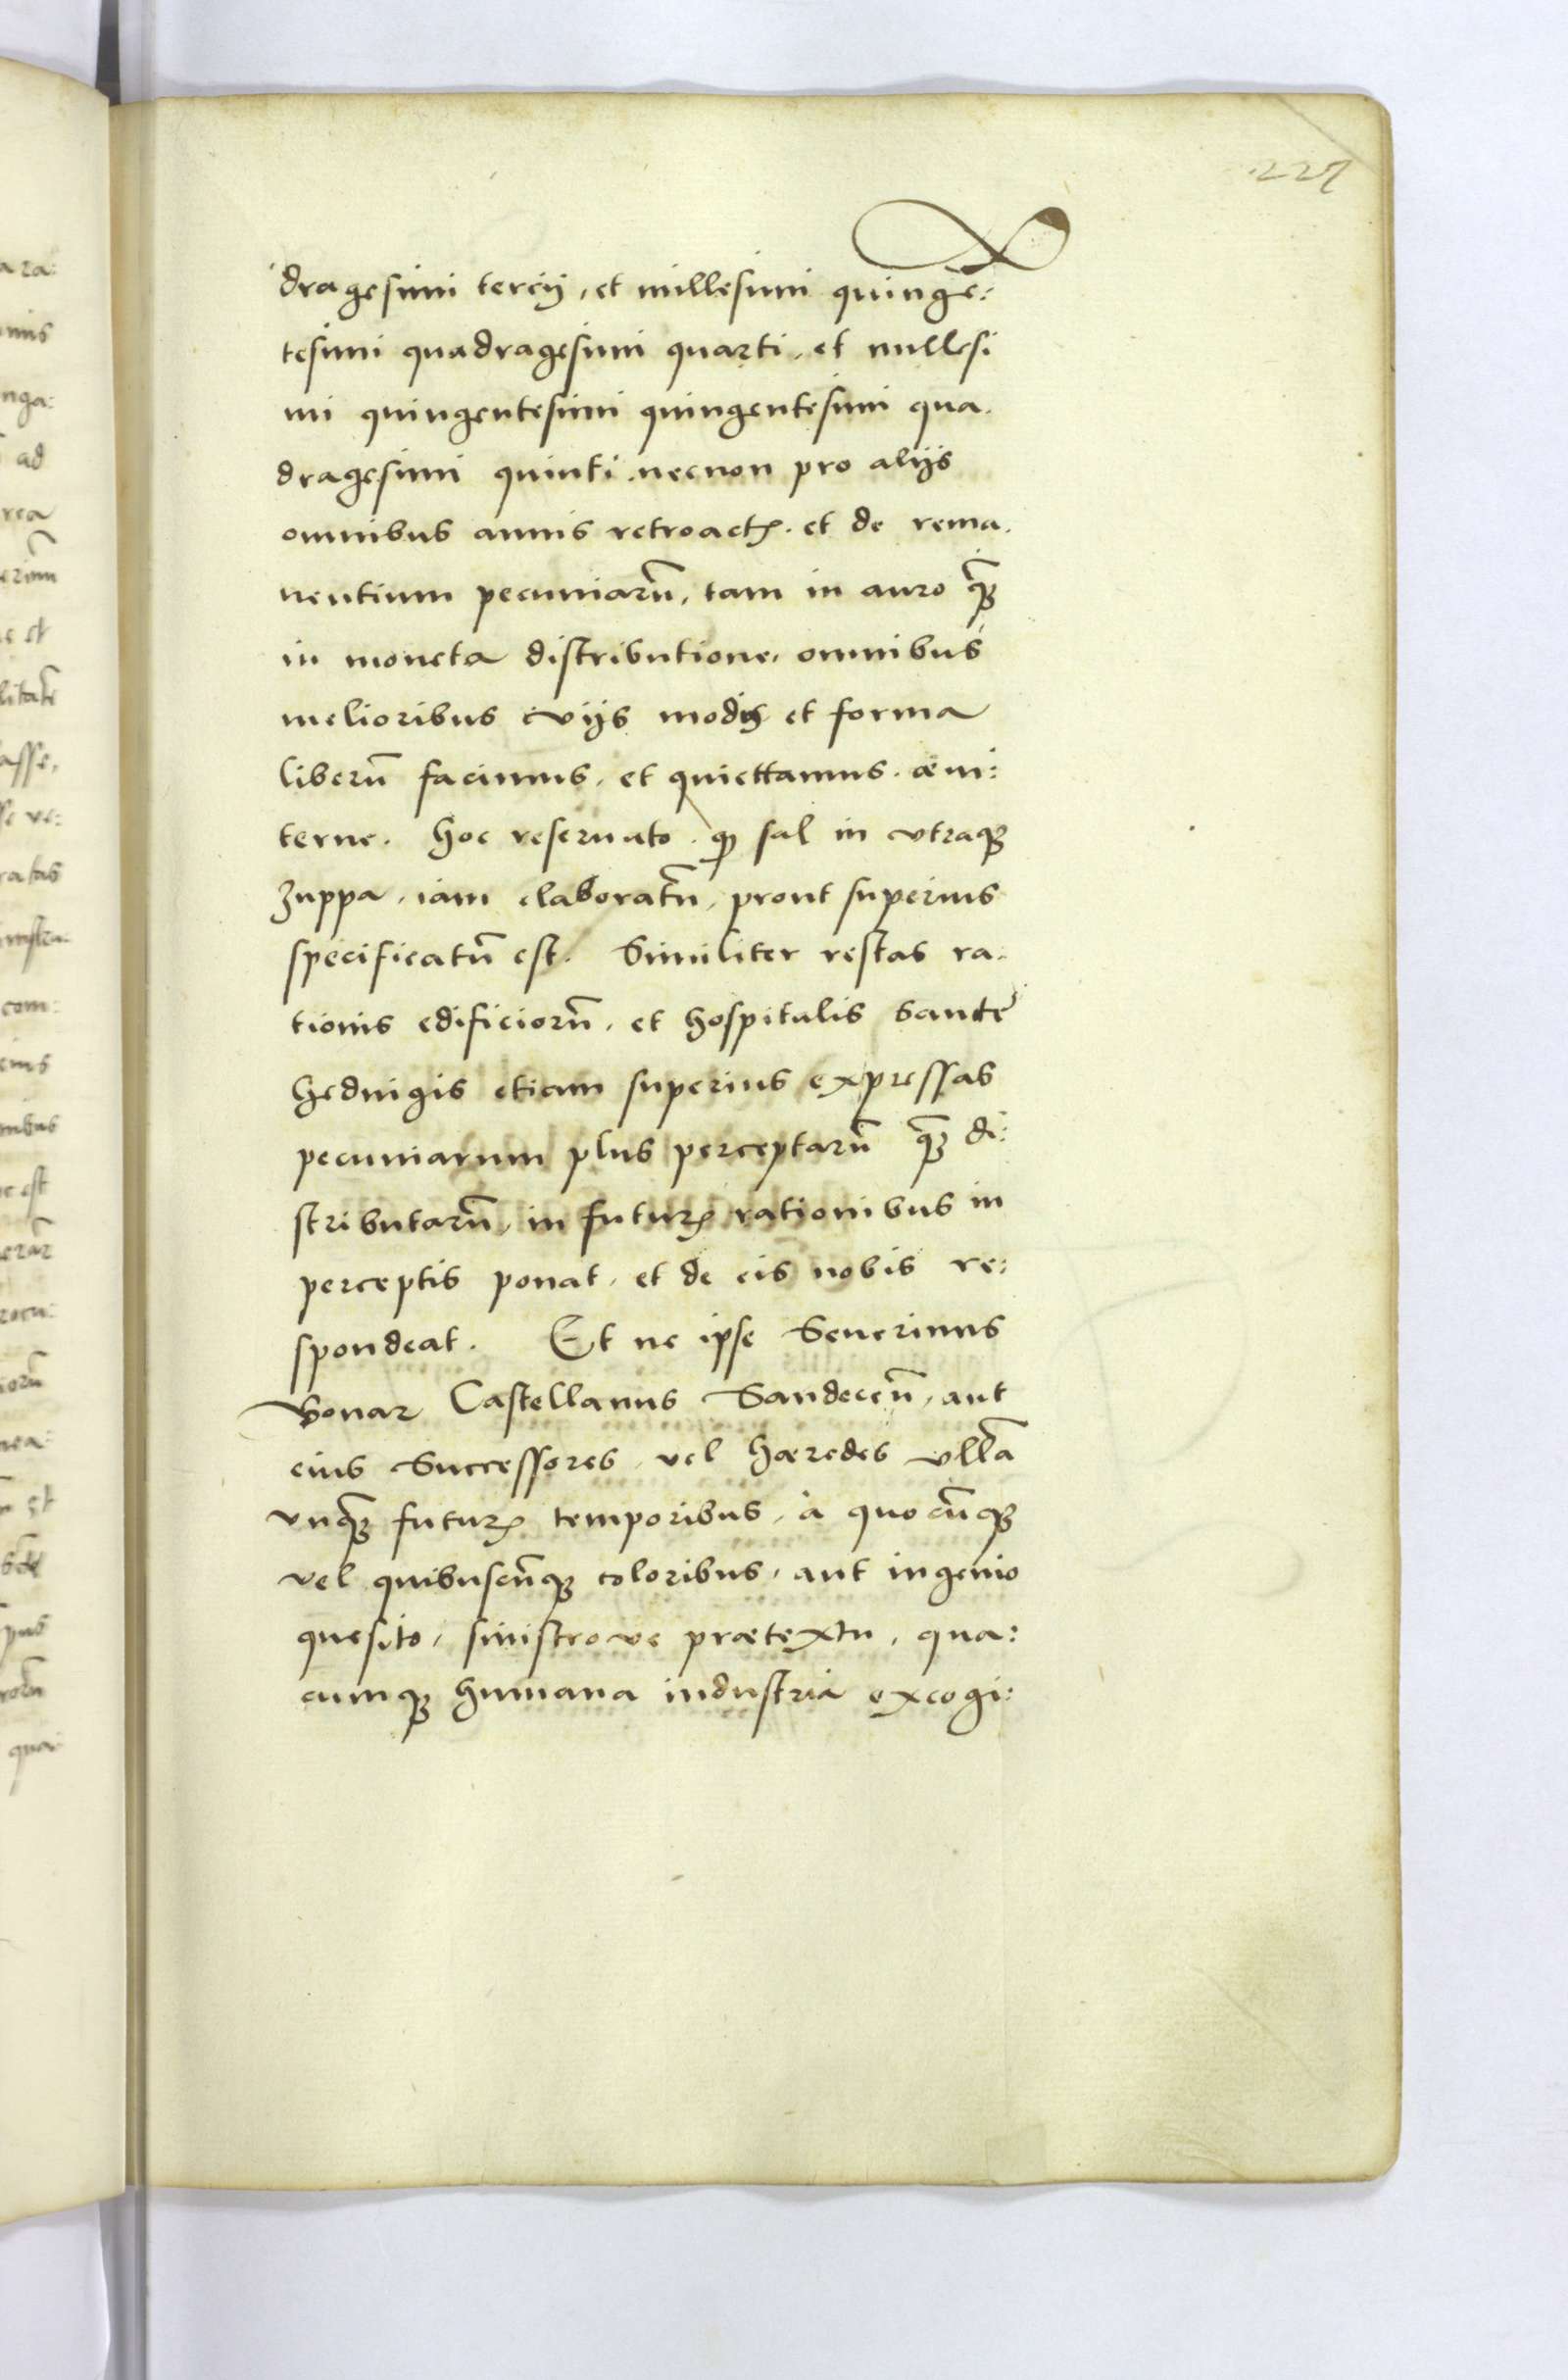 227
dragesimi tercij, et millesimi quingē:
tesimi quadragesimi quarti, et millesi
mi quingentesimi quingentesimi qua.
dragesimi quinti. necnon pro alijs
omnibus annis retroactꝭ. et de rema.
nentium pecuniarū, tam in auro qꝫ̄
in moneta distributione, omnibus
melioribus vijs modis et forma
liberū facimus, et quiettamus. æui:
terne. hoc reseruato. qꝫ sal in vtraqꝫ
Zuppa, iam elaboratū, prout superius
specificatū est. Similiter restas ra.
tionis edificiorū, et hospitalis Sancte
heduigis etiam superius expressas
pecuniarum plus perceptarū qꝫ̄ di:
stributarū, in futurꝭ rationibus in
perceptis ponat, et de eis nobis re:
spondeat. Et ne ipse Seuerinus
Bonar Castellanus Sandeceñ, aut
eius Successores, vel hæredes vllā
vnqꝫ̄ futurꝭ temporibus, à quocūqꝫ
vel quibuscūqꝫ coloribus, aut ingenio
quesito, sinistroue prætextu, qua:
cumqꝫ humana industria excogi: